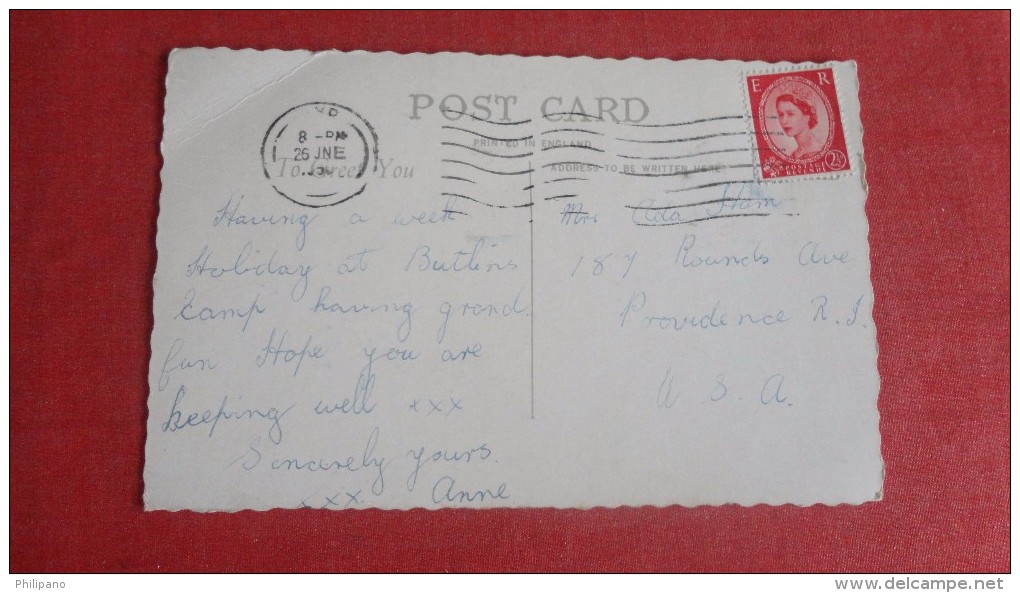 POST CARD
E R
8 - PM
26 JNE
PRINTED IN ENGLAND
POSTAGE 2½
REVENUE
To Greet You
ADDRESS TO BE WRITTEN HERE
Having a week
Holiday at Butlins
Camp having grand
fun Hope you are
keeping well xxx
Sincerely yours.
xxx. Anne
Mrs Ada
187 Rounds Ave
Providence R.I.
U.S.A.
Philipano
www.delcampe.net